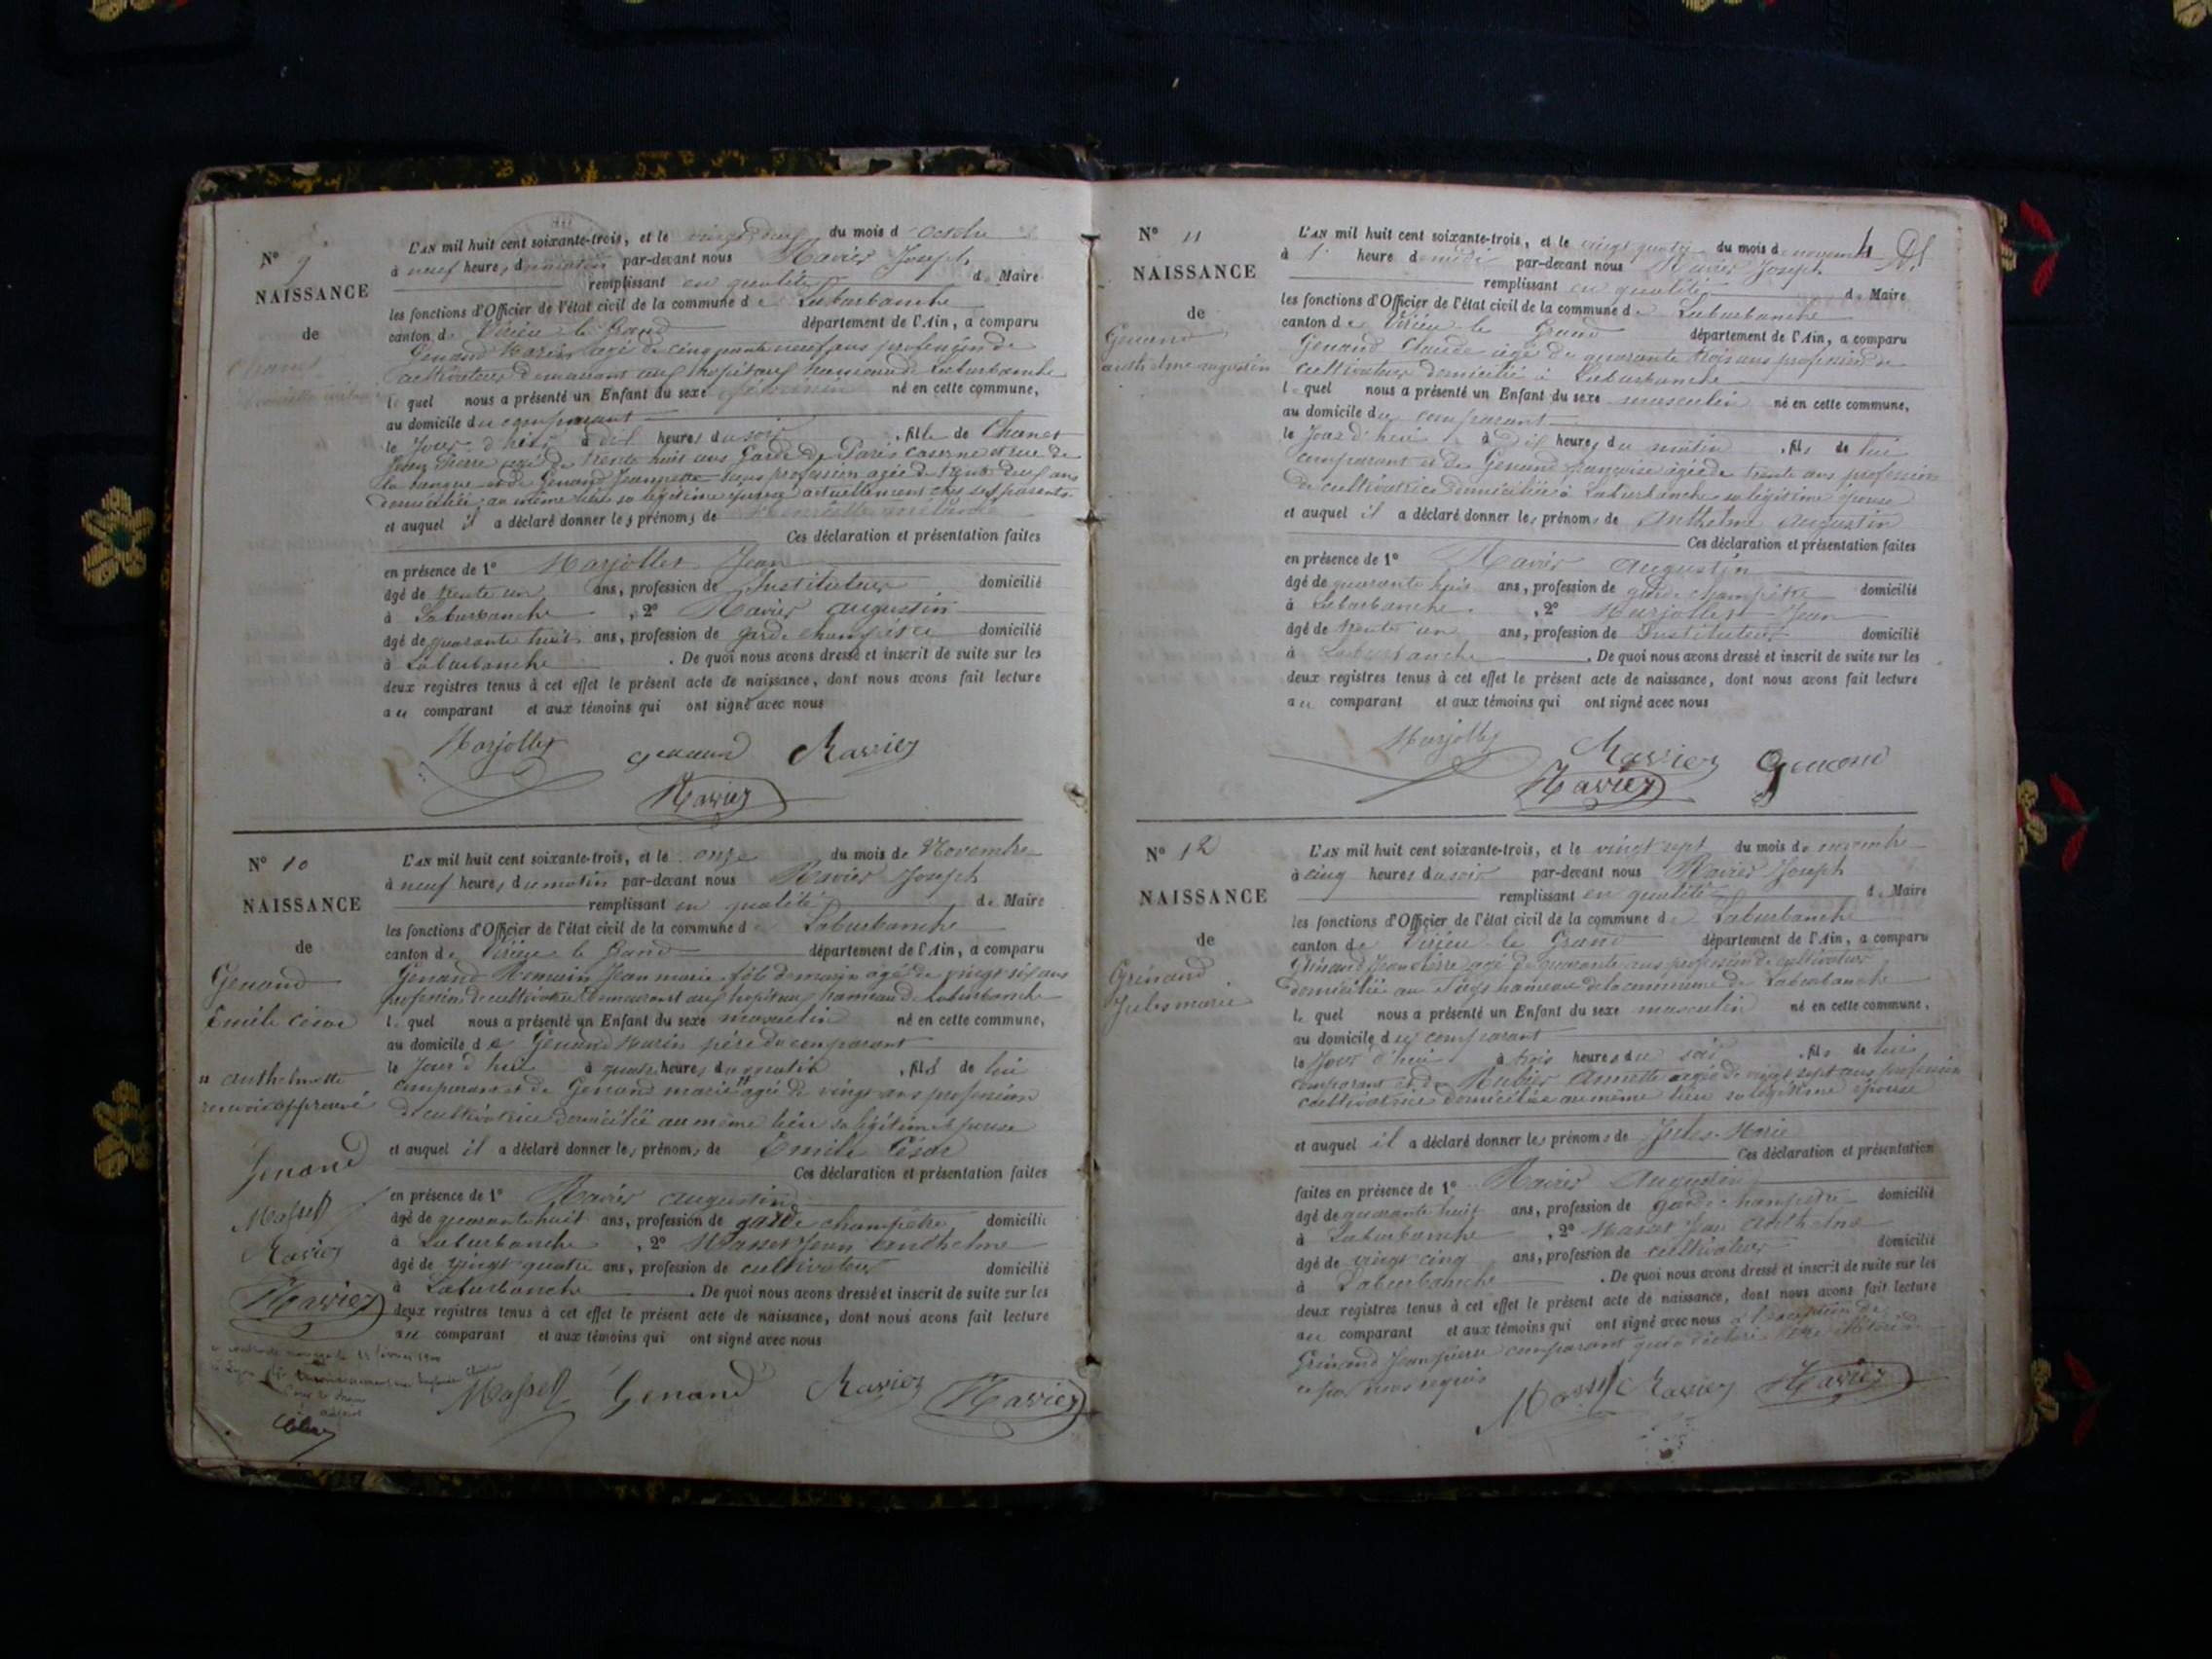 N° 9
NAISSANCE
de
Chanet
L'AN mil huit cent soixante-trois, et le vingt deux du mois d octobre
à neuf heures du matin par-devant nous Ravier Joseph
remplissant en qualité de Maire
les fonctions d'Officier de l'état civil de la commune de Laburbanche
canton de Virieu le Grand département de l'Ain, a comparu
Genand Marin agé de cinquante neuf ans profession de
cultivateur demeurant aux hopitaux hameau de Laburbanche
lequel nous a présenté un Enfant du sexe féminin né en cette commune,
au domicile du comparant
le Jour d'hier à dix heures du soir , fille de Chanet
Jean Pierre agé de trente huit ans Garde de Paris caserne et rue de
la banque et de Genand Jeannette sans profession agée de trente deux ans
domiciliée au même lieu sa légitime épouse actuellement chez ses parents
et auquel il a déclaré donner les prénoms de
Ces déclaration et présentation faites
en présence de 1° Marjollet Jean
âgé de trente un ans, profession de Instituteur domicilié
à Laburbanche , 2° Ravier augustin
âgé de quarante huit ans, profession de garde champêtre domicilié
à Laburbanche . De quoi nous avons dressé et inscrit de suite sur les
deux registres tenus à cet effet le présent acte de naissance, dont nous avons fait lecture
au comparant et aux témoins qui ont signé avec nous
Marjollet Genand Ravier
Ravier
N° 10
NAISSANCE
de
Genand
Emile César
" anthelmette
renvoi approuvé
Genand
Masset
Ravier
Ravier
L'AN mil huit cent soixante-trois, et le onze du mois de Novembre
à neuf heures du matin par-devant nous Ravier Joseph
remplissant en qualité de Maire
les fonctions d'Officier de l'état civil de la commune de Laburbanche
canton de Virieu le Grand département de l'Ain, a comparu
Genand Romain Jean marie fils de marin agé de vingt six ans
profession de cultivateur demeurant aux hopitaux hameau de Laburbanche
lequel nous a présenté un Enfant du sexe masculin né en cette commune,
au domicile de Genand Marin père du comparant
le Jour d'hui à quatre heures du matin , fils de lui
comparant et de Genand marie " agée de vingt ans profession
de cultivatrice domiciliée au même lieu sa légitime épouse
et auquel il a déclaré donner les prénoms de Emile César
Ces déclaration et présentation faites
en présence de 1° Ravier augustin
âgé de quarante huit ans, profession de garde champêtre domicilié
à Laburbanche , 2° Masset Jean anthelme
âgé de vingt quatre ans, profession de cultivateur domicilié
à Laburbanche . De quoi nous avons dressé et inscrit de suite sur les
deux registres tenus à cet effet le présent acte de naissance, dont nous avons fait lecture
au comparant et aux témoins qui ont signé avec nous
Masset Genand Ravier Ravier
N° 11
NAISSANCE
de
Genand
anthelme augustin
4
L'AN mil huit cent soixante-trois, et le vingt quatre du mois de novembre
à 1 heure de midi par-devant nous Ravier Joseph
remplissant en qualité de Maire
les fonctions d'Officier de l'état civil de la commune de Laburbanche
canton de Virieu le Grand département de l'Ain, a comparu
Genand Claude agé de quarante trois ans profession de
cultivateur domicilié à Laburbanche
lequel nous a présenté un Enfant du sexe masculin né en cette commune,
au domicile du comparant
le Jour d'hui à dix heures du matin , fils de lui
comparant et de Genand françoise agée de trente ans profession
de cultivatrice domiciliée à Laburbanche sa légitime épouse
et auquel il a déclaré donner les prénoms de Anthelme augustin
Ces déclaration et présentation faites
en présence de 1° Ravier augustin
âgé de quarante huit ans, profession de garde champêtre domicilié
à Laburbanche , 2° Marjollet Jean
âgé de trente un ans, profession de Instituteur domicilié
à Laburbanche . De quoi nous avons dressé et inscrit de suite sur les
deux registres tenus à cet effet le présent acte de naissance, dont nous avons fait lecture
au comparant et aux témoins qui ont signé avec nous
Marjollet Ravier Genand
Ravier
N° 12
NAISSANCE
de
Grinand
Jules marie
L'AN mil huit cent soixante-trois, et le vingt sept du mois de novembre
à cinq heures du soir par-devant nous Ravier Joseph
remplissant en qualité de Maire
les fonctions d'Officier de l'état civil de la commune de Laburbanche
canton de Virieu le Grand département de l'Ain, a comparu
Grinand Jean Pierre agé de quarante ans profession de cultivateur
domicilié au hameau de la commune de Laburbanche
lequel nous a présenté un Enfant du sexe masculin né en cette commune,
au domicile du comparant
le Jour d'hui à trois heures du soir , fils de lui
comparant et de Rubier Annette agée de vingt sept ans profession
cultivatrice domiciliée au même lieu sa légitime épouse
et auquel il a déclaré donner les prénoms de Jules Marie
Ces déclaration et présentation
faites en présence de 1° Ravier Augustin
âgé de quarante huit ans, profession de garde champêtre domicilié
à Laburbanche , 2° Masset Jean Anthelme
âgé de vingt cinq ans, profession de cultivateur domicilié
à Laburbanche . De quoi nous avons dressé et inscrit de suite sur les
deux registres tenus à cet effet le présent acte de naissance, dont nous avons fait lecture
au comparant et aux témoins qui ont signé avec nous à l'exception de
Grinand Jean pierre comparant qui a déclaré
ce par nous requis
Masset Ravier Ravier